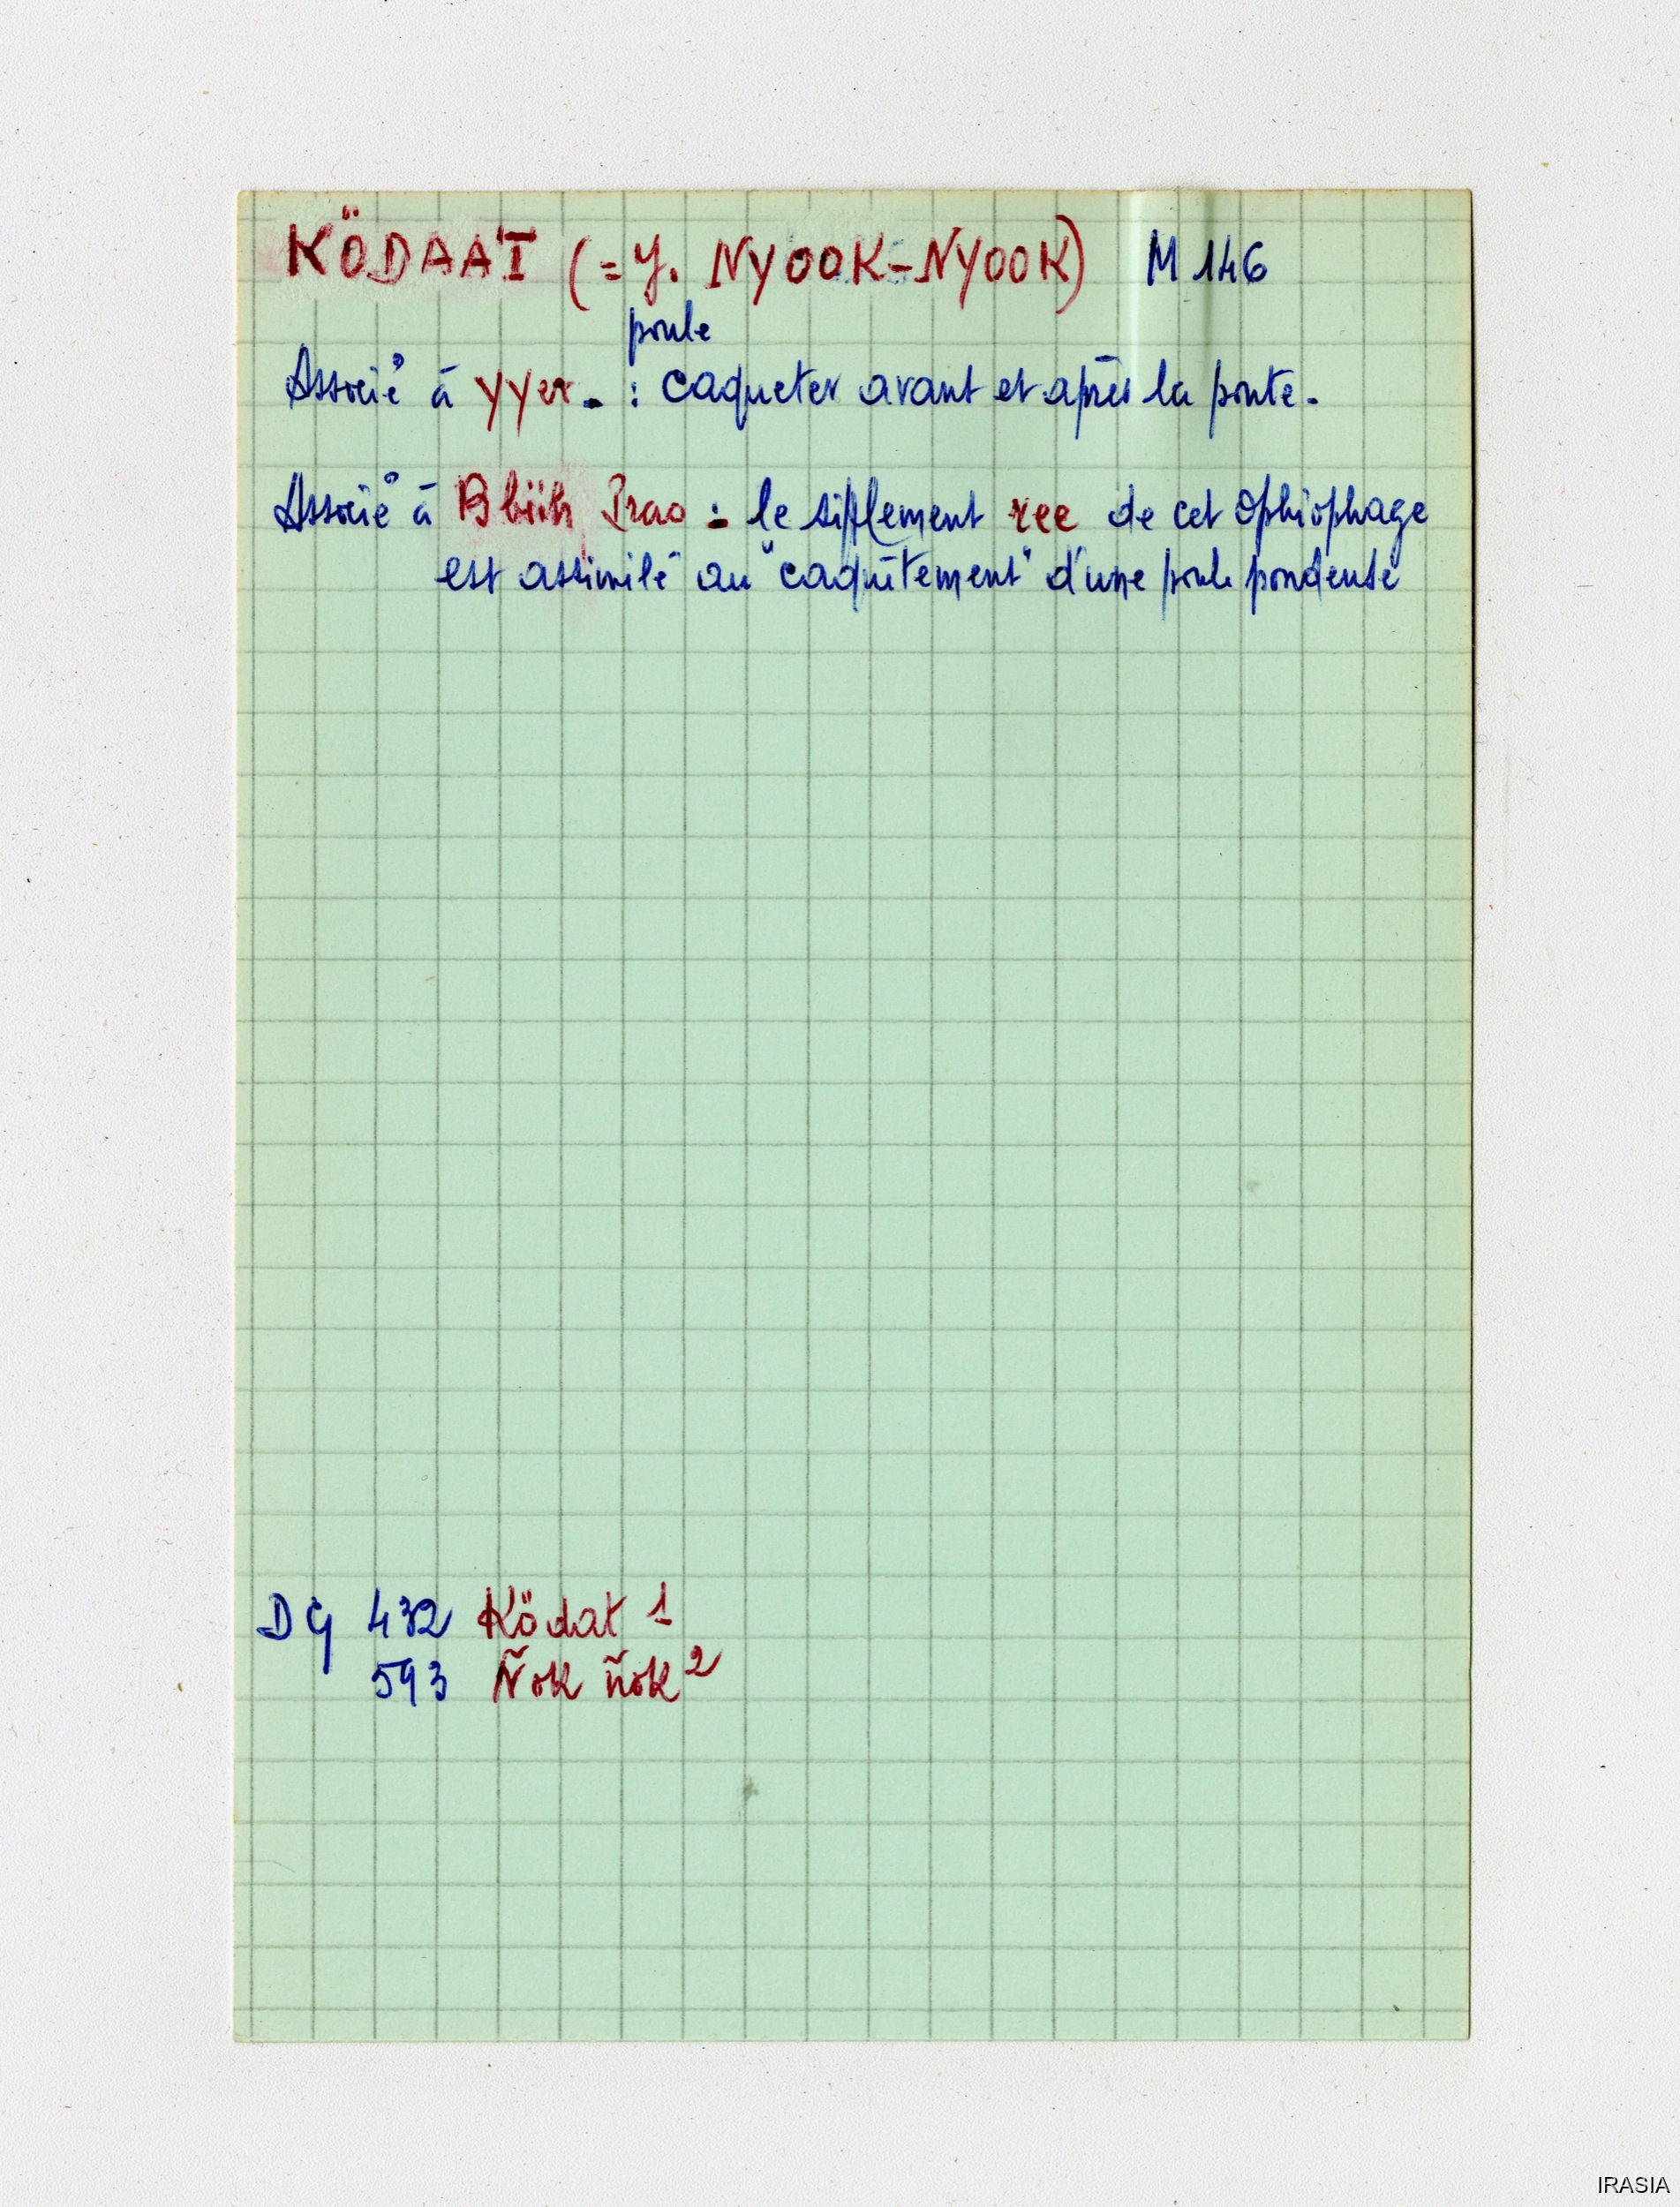 KÖDAAT (= Y. NYOOK-NYOOK) M 146
poule
Associé à yyer. : caqueter avant et après la ponte.
Associé à Bbiih Prao : le sifflement ree de cet Ophiophage
est assimilé au "caquètement" d'une poule pondeuse
DG 432 Ködat 1
593 Ñok ñok 2
IRASIA